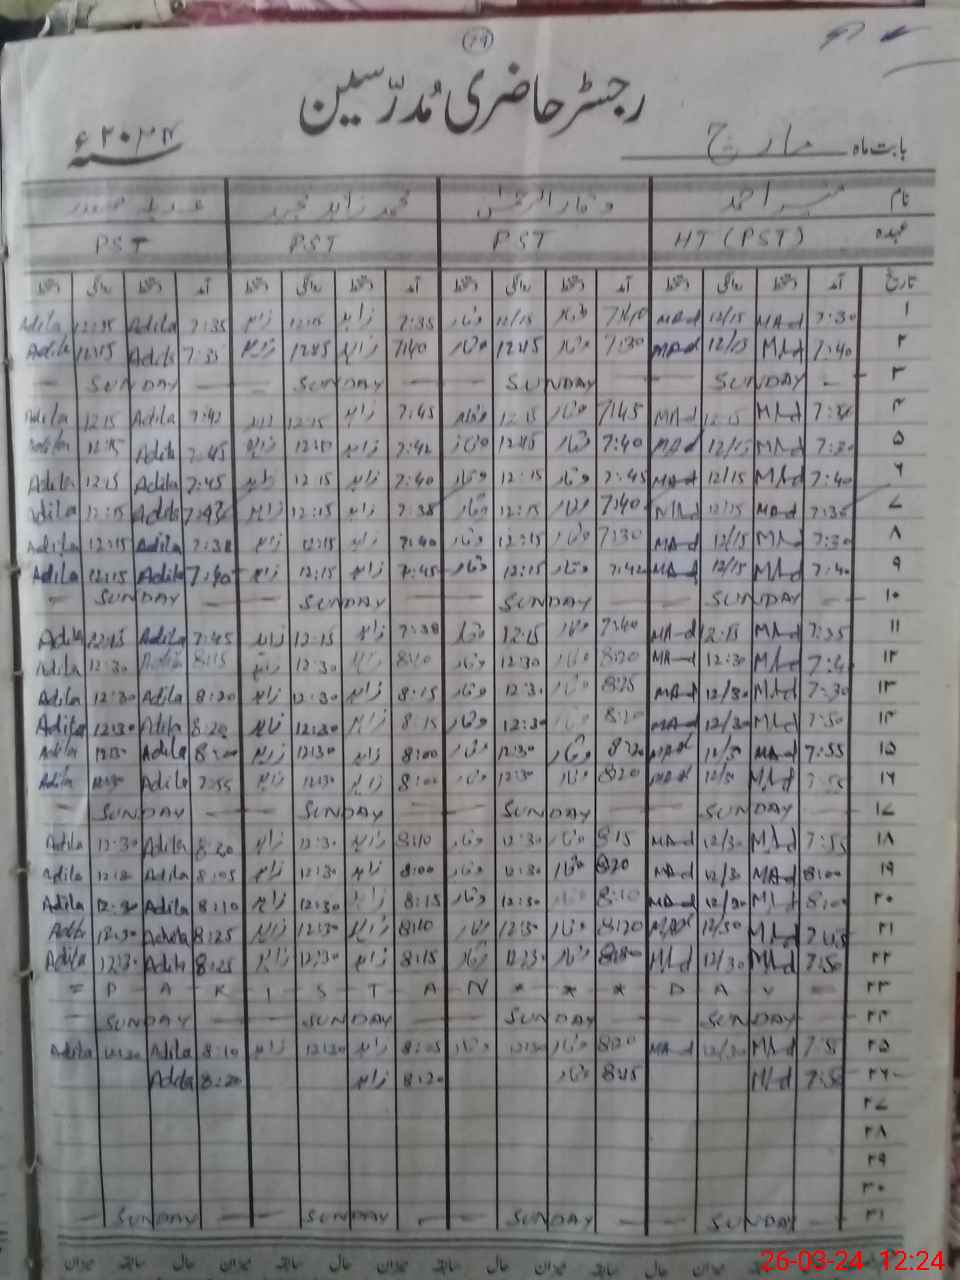 29
رجسٹر حاضری مُدرّسین
بابت ماہ مارچ سنہ ۲۰۲۴ء
نام منیر احمد وقار الرحمٰن محمد زاہد مجید عدیلہ
عہدہ HT (PST) PST PST PST
تاریخ آمد دستخط روانگی دستخط آمد دستخط روانگی دستخط آمد دستخط روانگی دستخط آمد دستخط روانگی دستخط
۱ 7:30 MAd 12/15 MAd 7:40 وقار 12/15 وقار 7:35 زاہد 12:15 زاہد 7:35 Adila 12:15 Adila
۲ 7:40 MAd 12/15 MAd 7:30 وقار 12:15 وقار 7:40 زاہد 12:15 زاہد 7:35 Adila 12:15 Adila
۳ SUNDAY SUNDAY SUNDAY SUNDAY
۴ MAd 12:15 MAd 7:45 وقار 12:15 وقار 7:45 زاہد 12:15 زاہد 7:42 Adila 12:15 Adila
۵ 7:30 MAd 12/15 MAd 7:40 وقار 12:15 وقار 7:42 زاہد زاہد 7:45 Adila 12:15 Adila
۶ 7:40 MAd 12/15 MAd 7:45 وقار 12:15 وقار 7:40 زاہد 12:15 زاہد 7:45 Adila 12:15 Adila
۷ 7:35 MAd 12/15 MAd 7:40 وقار 12:15 وقار 7:38 زاہد 12:15 زاہد Adila 12:15 Adila
۸ 7:30 MAd 12/15 MAd 7:30 وقار 12:15 وقار 7:40 زاہد 12:15 زاہد 7:38 Adila 12:15 Adila
۹ 7:40 MAd 12/15 MAd 7:42 وقار 12:15 وقار 7:45 زاہد 12:15 زاہد 7:40 Adila 12:15 Adila
۱۰ SUNDAY SUNDAY SUNDAY SUNDAY
۱۱ 7:35 MAd 12:15 MAd 7:40 وقار 12:15 وقار 7:38 زاہد 12:15 زاہد 7:45 Adila 12:15 Adila
۱۲ MAd 12:30 MAd 8:20 وقار 12:30 وقار زاہد 12:30 زاہد 8:15 Adila 12:30 Adila
۱۳ 7:30 MAd 12/30 MAd 8:25 وقار 12:30 وقار 8:15 زاہد 12:30 زاہد 8:20 Adila 12:30 Adila
۱۴ 7:50 MAd 12/30 MAd وقار 12:30 وقار 8:15 زاہد 12:30 زاہد 8:20 Adila 12:30 Adila
۱۵ 7:55 MAd 12/30 MAd 8:20 وقار 12:30 وقار 8:00 زاہد 12:30 زاہد 8:00 Adila 12:30 Adila
۱۶ 7:55 MAd 12/30 MAd 8:20 وقار 12:30 وقار زاہد 12:30 زاہد 7:55 Adila 12:30 Adila
۱۷ SUNDAY SUNDAY SUNDAY SUNDAY
۱۸ 7:55 MAd 12/30 MAd 8:15 وقار 12:30 وقار 8:10 زاہد 12:30 زاہد 8:20 Adila 12:30 Adila
۱۹ 8:00 MAd 12/30 MAd 8:20 وقار 12:30 وقار 8:00 زاہد 12:30 زاہد 8:05 Adila 12:30 Adila
۲۰ 8:00 MAd 12/30 MAd 8:10 وقار 12:30 وقار 8:15 زاہد 12:30 زاہد 8:10 Adila 12:30 Adila
۲۱ MAd 12/30 MAd 8:20 وقار 12:30 وقار 8:10 زاہد 12:30 زاہد 8:25 Adila 12:30 Adila
۲۲ 7:50 MAd 12/30 MAd وقار 12:30 وقار 8:15 زاہد 12:30 زاہد 8:25 Adila 12:30 Adila
۲۳ = P A K I S T A N * * * D A Y =
۲۴ SUNDAY SUNDAY SUNDAY SUNDAY
۲۵ MAd 12/30 MAd 8:20 وقار 12:30 وقار 8:05 زاہد 12:30 زاہد 8:10 Adila 12:30 Adila
۲۶ 7:50 MAd 8:15 وقار 8:20 زاہد 8:20 Adila
۲۷
۲۸
۲۹
۳۰
۳۱ SUNDAY SUNDAY SUNDAY SUNDAY
حال سابقہ میزان حال سابقہ میزان حال سابقہ میزان
26-03-24 12:24